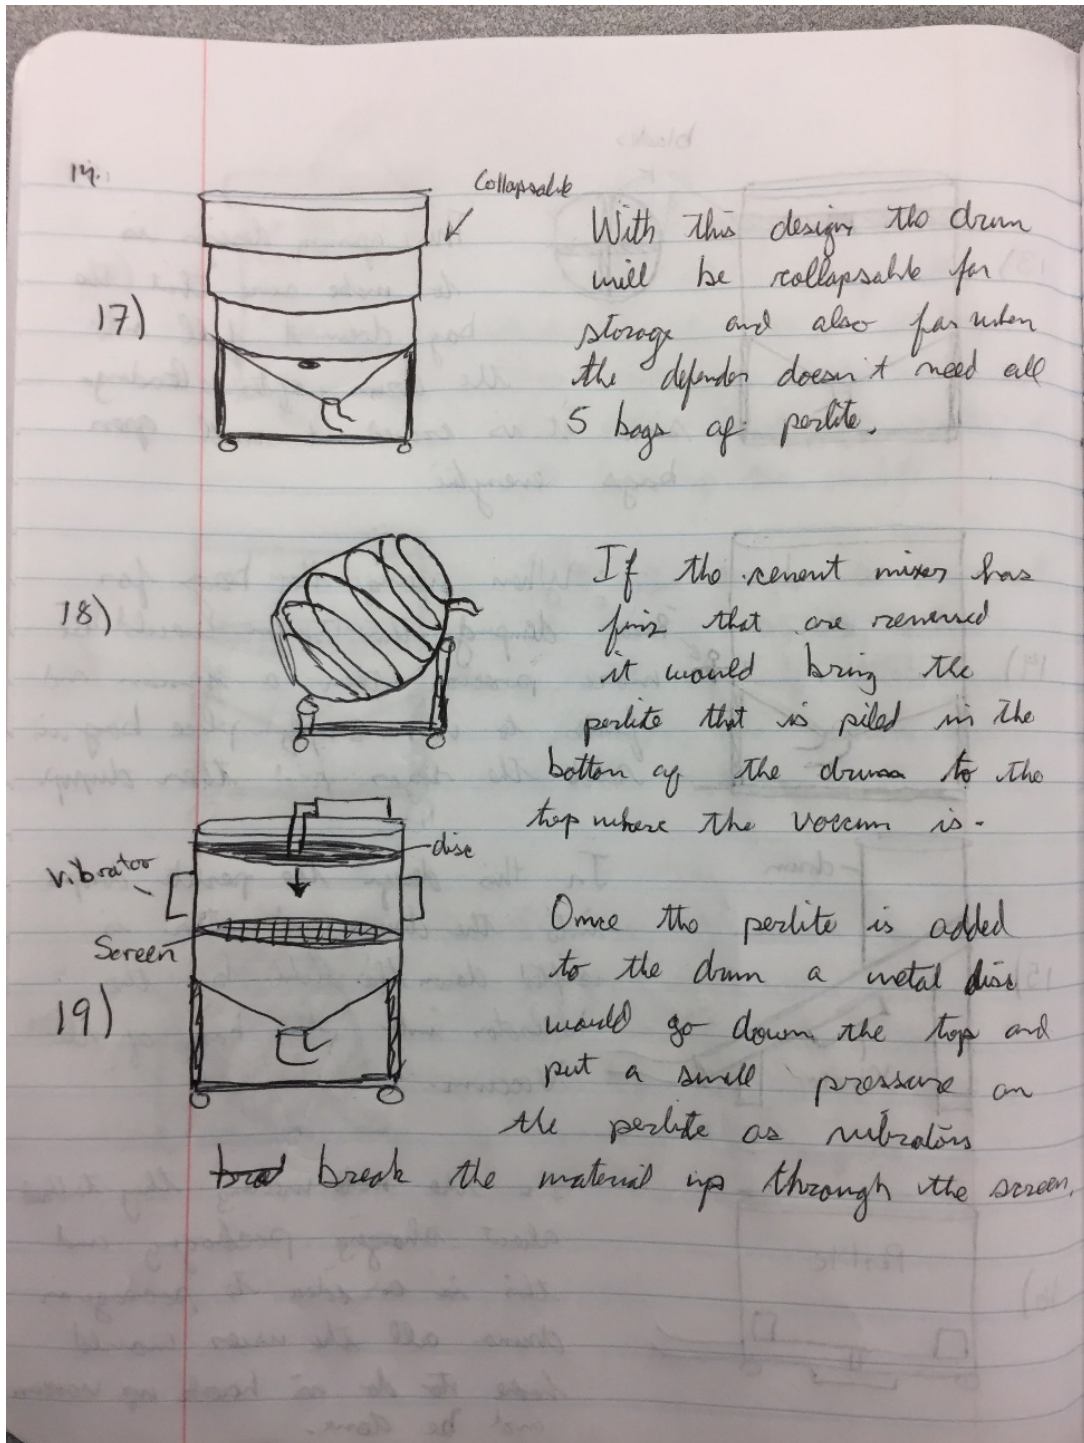 14.
Collapsable
17)
With this design the drum
will be collapsable for
storage and also for when
the defender doesn't need all
5 bags of perlite.
18)
If the cement mixer has
fins that are reversed
it would bring the
perlite that is piled in the
bottom of the drum to the
top where the vaccum is.
disc
Vibrator
Screen
19)
Once the perlite is added
to the drum a metal disc
would go down the top and
put a small pressure on
the perlite as vibrators
break the material up through the screen.